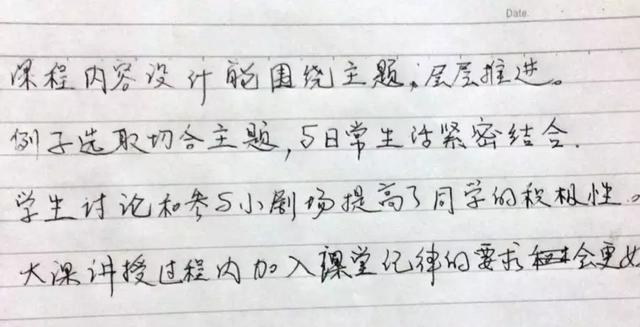 Date.
课程内容设计能围绕主题,层层推进。
例子选取切合主题,与日常生活紧密结合.
学生讨论和参与小剧场提高了同学的积极性。
大课讲授过程内加入课堂纪律的要求会更